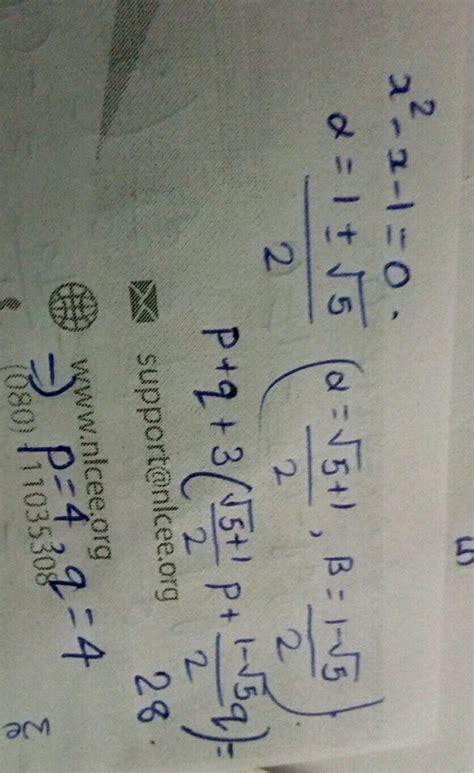 5
x² - x - 1 = 0.
α = (1 ± √5)/2 (α = (√5+1)/2, β = (1-√5)/2).
p + q + 3((√5+1)/2 p + (1-√5)/2 q) =
28.
support@nlcee.org
www.nlcee.org
⇒ p = 4, q = 4
(080) 11035308